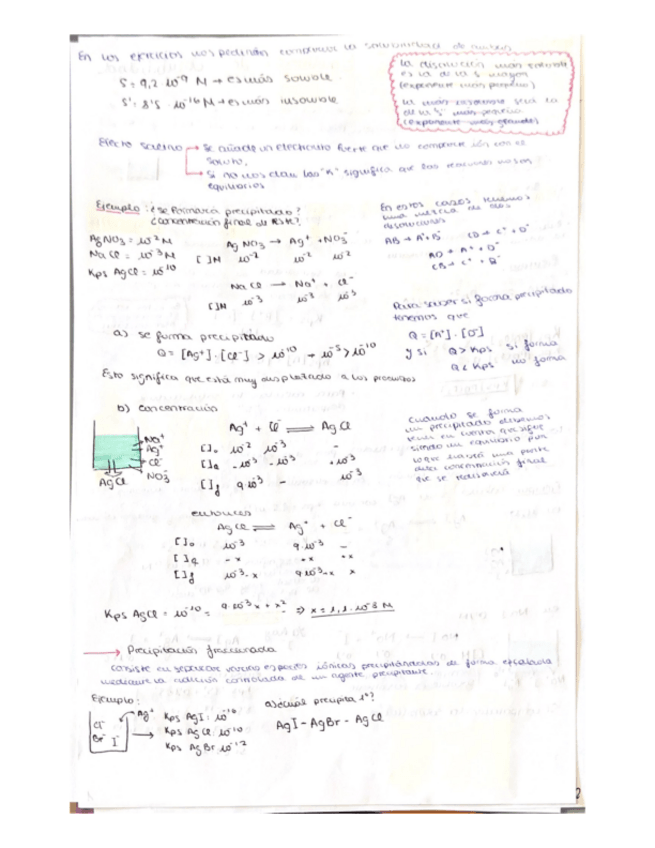 En los ejercicios nos pedirán comparar la solubilidad de
S = 9,2 · 10⁻⁹ M → es más soluble
S' = 8'5 · 10⁻¹⁶ M → es más insoluble
la disolución más soluble
es la de la S mayor
(exponente más pequeño)
la más insoluble será la
de la "S" más pequeña
(exponente más grande)
Efecto salino → Se añade un electrolito fuerte que no comparte ión con el
soluto.
→ Si no nos dan las "K" significa que las reacciones no son
equilibrios
Ejemplo: ¿se formará precipitado?
¿concentración final de
AgNO₃ = 10⁻² M
NaCl = 10⁻³ M
Kps AgCl = 10⁻¹⁰
AgNO₃ → Ag⁺ + NO₃⁻
[ ]M 10⁻² 10⁻² 10⁻²
NaCl → Na⁺ + Cl⁻
[ ]M 10⁻³ 10⁻³ 10⁻³
En estos casos tenemos
una mezcla de dos
disoluciones
AB → A⁺ B⁻ CD → C⁺ + D⁻
AD → A⁺ + D⁻
CB → C⁺ + B⁻
Para saber si forma precipitado
tenemos que
Q = [A⁺] · [D⁻]
y si Q > Kps si forma
Q < Kps no forma
a) se forma precipitado
Q = [Ag⁺] · [Cl⁻] > 10⁻¹⁰ → 10⁻⁵ > 10⁻¹⁰
Esto significa que está muy desplazado a los productos
b) concentración
Na⁺
Ag⁺
Cl⁻
NO₃⁻
AgCl
Ag⁺ + Cl⁻ ⇌ AgCl
[ ]₀ 10⁻² 10⁻³ –
-10⁻³ -10⁻³ +10⁻³
[ ]f 9·10⁻³ – 10⁻³
cuando se forma
un precipitado debemos
tener en cuenta que sigue
siendo un equilibrio por
lo que habrá una parte
concentración final
que se
entonces
AgCl ⇌ Ag⁺ + Cl⁻
[ ]₀ 10⁻³ 9·10⁻³ –
-x +x +x
[ ]f 10⁻³-x 9·10⁻³-x x
Kps AgCl = 10⁻¹⁰ = 9·10⁻³x + x² ⇒ x = 1,1·10⁻⁸ M
→ Precipitación fraccionada
consiste en separar varias especies iónicas precipitándolas de forma escalada
mediante la adición controlada de un agente precipitante.
Ejemplo:
Ag⁺
Cl⁻
Br⁻ I⁻
Kps AgI: 10⁻¹⁶
Kps AgCl: 10⁻¹⁰
Kps AgBr: 10⁻¹²
a) ¿cuál precipita 1º?
AgI - AgBr - AgCl
2